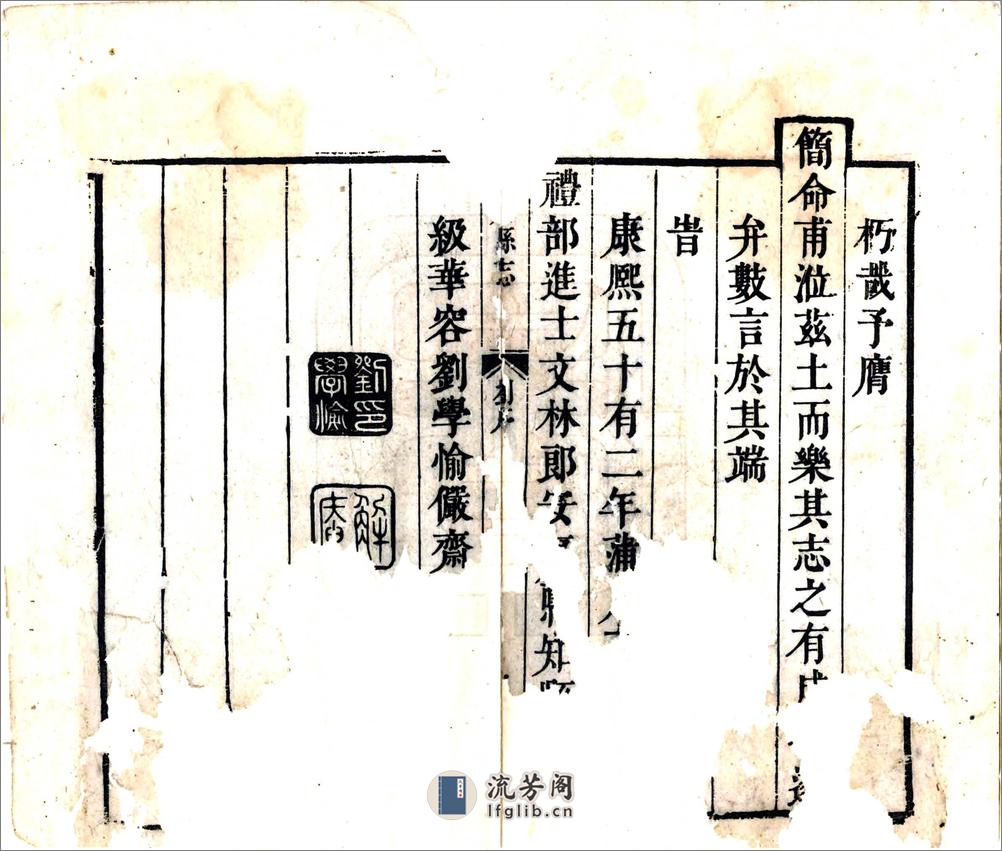 朽哉予膺
簡命甫涖茲土而樂其志之有成
弁數言於其端
旹
康熙五十有二年蒲
禮部進士文林郎安 縣知縣
縣志 刘序
級華容劉學愉儼齋
劉學愉印
流芳阁
lfglib.cn